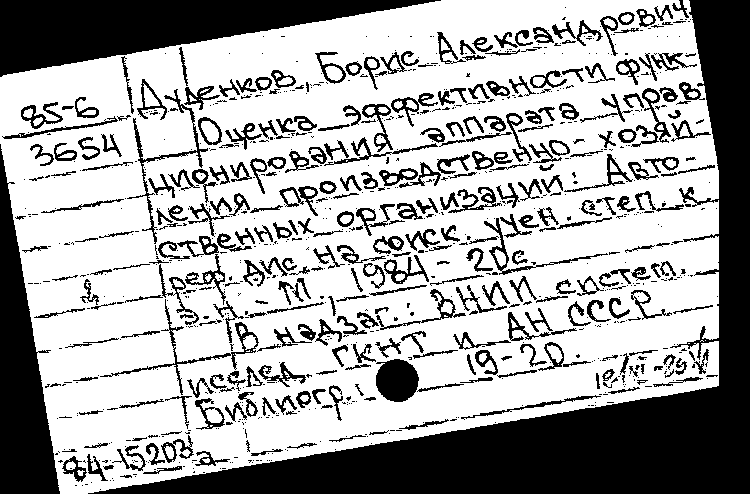 85-6
3654
Дуденков, Борис Александрович
Оценка эффективности функ-
ционирования аппарата управ-
ления производственно-хозяй-
ственных организаций: Авто-
реф. дис. на соиск. учен. степ. к.
э.н. - М., 1984. - 20с.
В надзаг.: ВНИИ систем.
исслед. ГКНТ и АН СССР.
Библиогр.: 19-20.
84-15203а